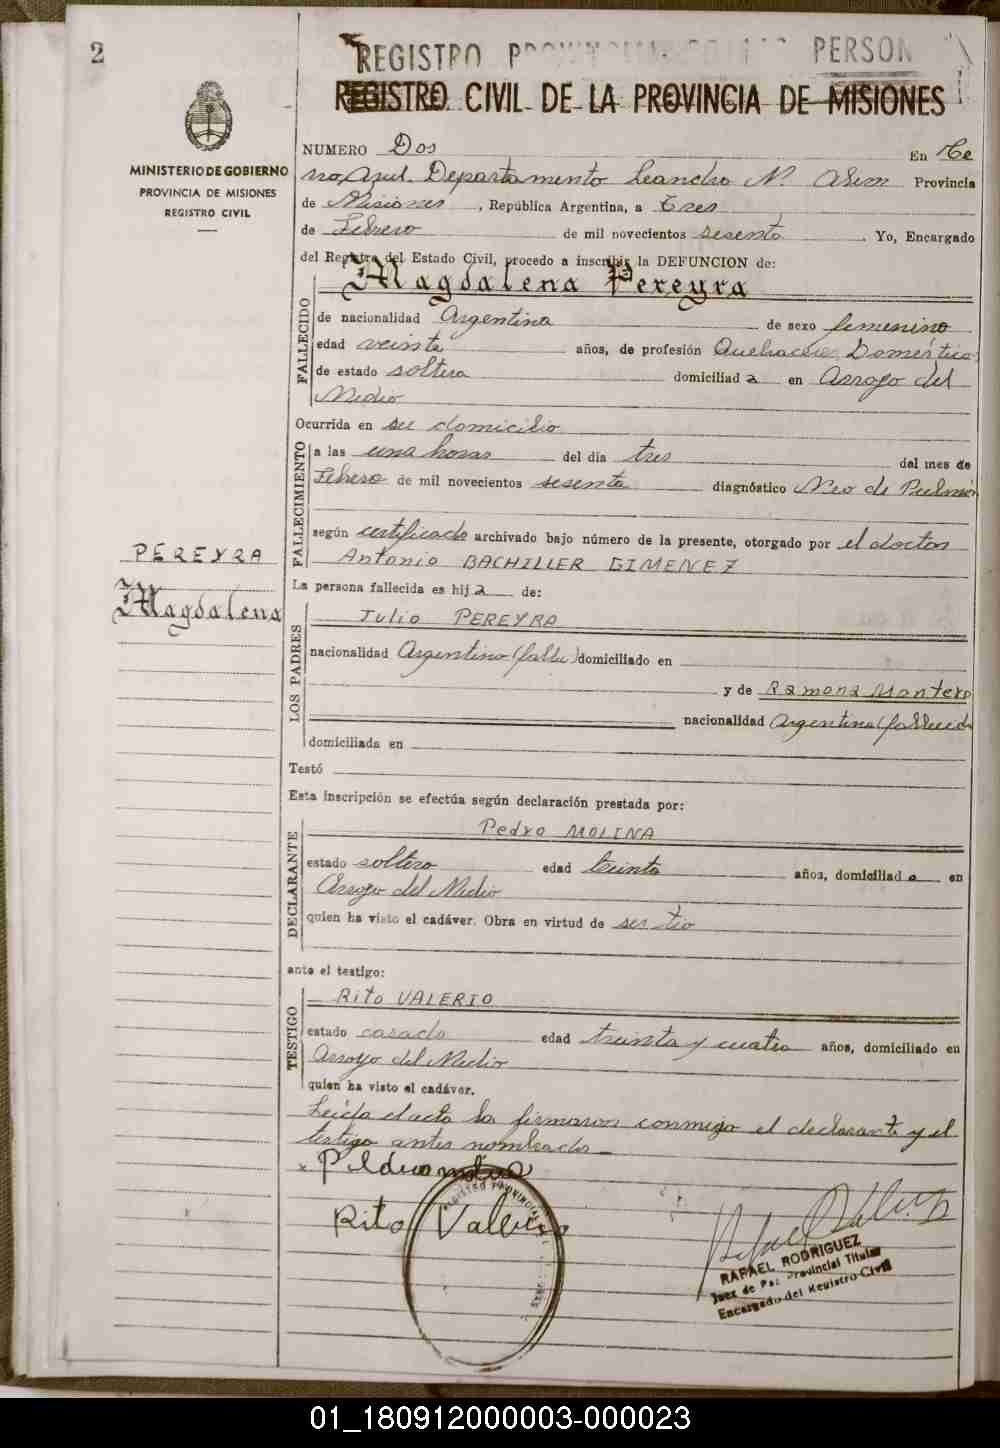 2
REGISTRO PROVINCIAL DE LAS PERSON
REGISTRO CIVIL DE LA PROVINCIA DE MISIONES
MINISTERIO DE GOBIERNO
PROVINCIA DE MISIONES
REGISTRO CIVIL
NUMERO Dos En Ce
rro Azul. Departamento Leandro N. Alem Provincia
de Misiones, República Argentina, a Tres
de Febrero de mil novecientos sesenta. Yo, Encargado
del Registro del Estado Civil, procedo a inscribir la DEFUNCION de:
FALLECIDO
Magdalena Pereyra
de nacionalidad Argentina de sexo femenino
edad veinte años, de profesión Quehacer Doméstico
de estado soltera domiciliad a en Arroyo del
Medio
Ocurrida en su domicilio
FALLECIMIENTO
a las una horas del día tres del mes de
Febrero de mil novecientos sesenta diagnóstico Neo de Pulmón
según certificado archivado bajo número de la presente, otorgado por el doctor
Antonio BACHILLER GIMENEZ
PEREYRA
Magdalena
La persona fallecida es hij a de:
LOS PADRES
Julio PEREYRA
nacionalidad Argentino (falle) domiciliado en
y de Ramona Montero
nacionalidad Argentina (fallecida
domiciliada en
Testó
Esta inscripción se efectúa según declaración prestada por:
DECLARANTE
Pedro MOLINA
estado soltero edad treinta años, domiciliad o en
Arroyo del Medio
quien ha visto el cadáver. Obra en virtud de ser tío
ante el testigo:
TESTIGO
Rito VALERIO
estado casado edad treinta y cuatro años, domiciliado en
Arroyo del Medio
quien ha visto el cadáver.
Leída el acta la firmaron conmigo el declarante y el
testigo antes nombrado
Rito Valerio
REGISTRO PROVINCIAL
RAFAEL RODRIGUEZ
Juez de Paz Provincial Titular
Encargado del Registro Civil
01_180912000003-000023